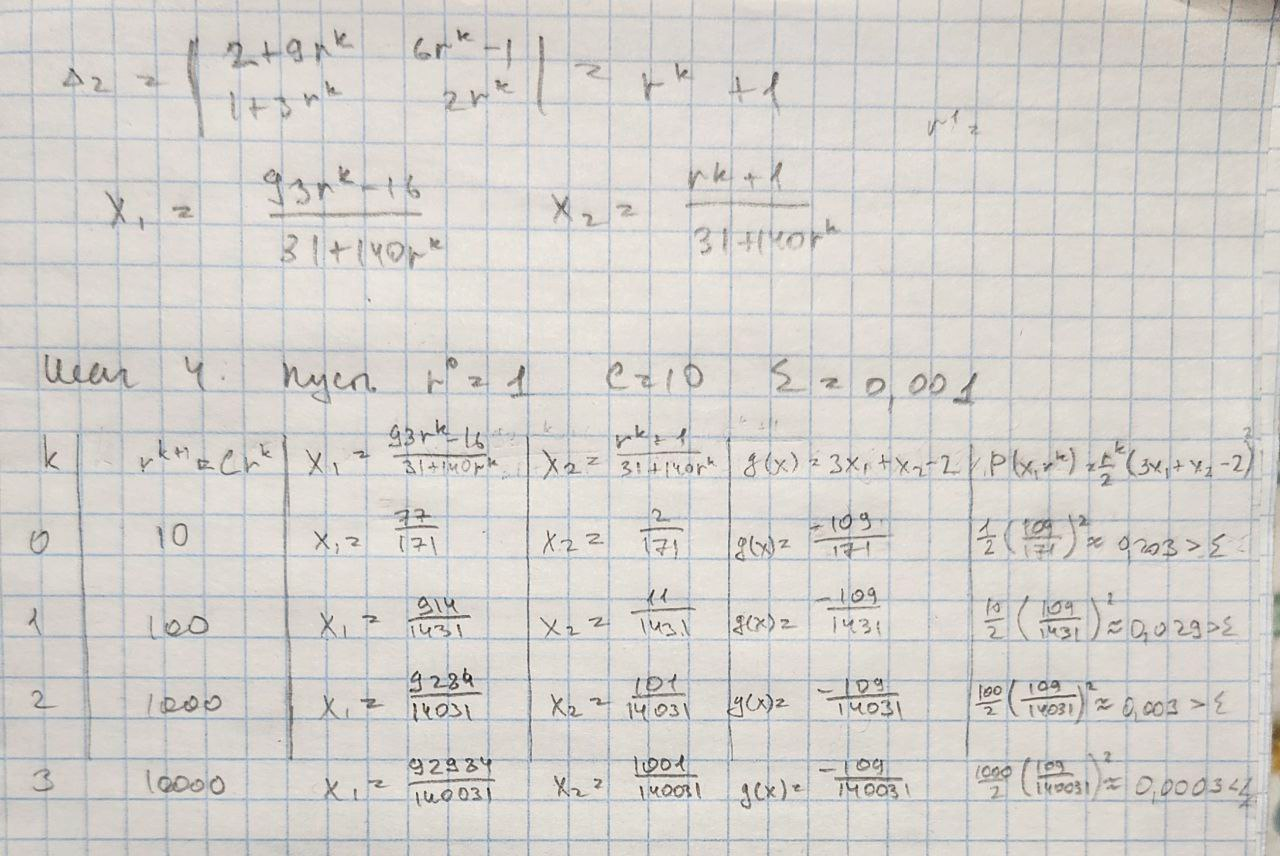 Δ₂ = | 2+9r^k 6r^k-1 | = r^k + 1
| 1+3r^k 2r^k |
r¹ =
X₁ = (93r^k-16)/(31+140r^k) X₂ = (r^k+1)/(31+140r^k)
Шаг 4. Пусть r⁰ = 1 C = 10 Σ = 0,001
k r^(k+1) = Cr^k X₁ = (93r^k-16)/(31+140r^k) X₂ = (r^k+1)/(31+140r^k) g(x) = 3x₁+x₂-2 P(x,r^k) = r^k/2 (3x₁+x₂-2)²
0 10 X₁ = 77/171 X₂ = 2/171 g(x) = -109/171 1/2 (109/171)² ≈ 0,203 > Σ
1 100 X₁ = 914/1431 X₂ = 11/1431 g(x) = -109/1431 10/2 (109/1431)² ≈ 0,029 > Σ
2 1000 X₁ = 9284/14031 X₂ = 101/14031 g(x) = -109/14031 100/2 (109/14031)² ≈ 0,003 > Σ
3 10000 X₁ = 92984/140031 X₂ = 1001/140031 g(x) = -109/140031 1000/2 (109/140031)² ≈ 0,0003 < Σ